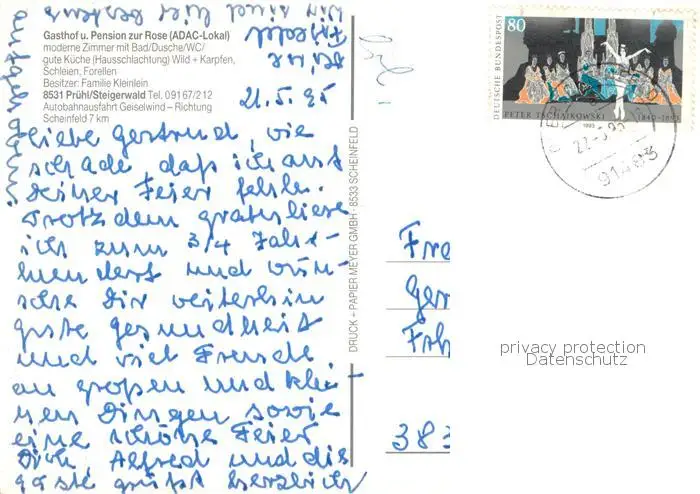 Gasthof u. Pension zur Rose (ADAC-Lokal)
moderne Zimmer mit Bad/Dusche/WC/
gute Küche (Hausschlachtung) Wild + Karpfen,
Schleien, Forellen
Besitzer: Familie Kleinlein
8531 Prühl/Steigerwald Tel. 09167/212
Autobahnausfahrt Geiselwind – Richtung
Scheinfeld 7 km
21.5.95
Liebe Gertrud, wie
schade daß ich auf
Deiner Feier fehle.
Trotzdem gratuliere
ich zum 3/4 Jahr-
hundert und wün-
sche Dir weiterhin
gute Gesundheit
und viel Freude
an großen und klei-
nen Dingen sowie
eine schöne Feier
Dich, Alfred und die
Gäste grüßt herzlich
Wir sind hier bestens
aufgehoben.
DRUCK + PAPIER MEYER GMBH · 8533 SCHEINFELD
DEUTSCHE BUNDESPOST
80
PETER TSCHAIKOWSKI 1840-1893
1993
91483
Fra
Ger
383
privacy protection
Datenschutz